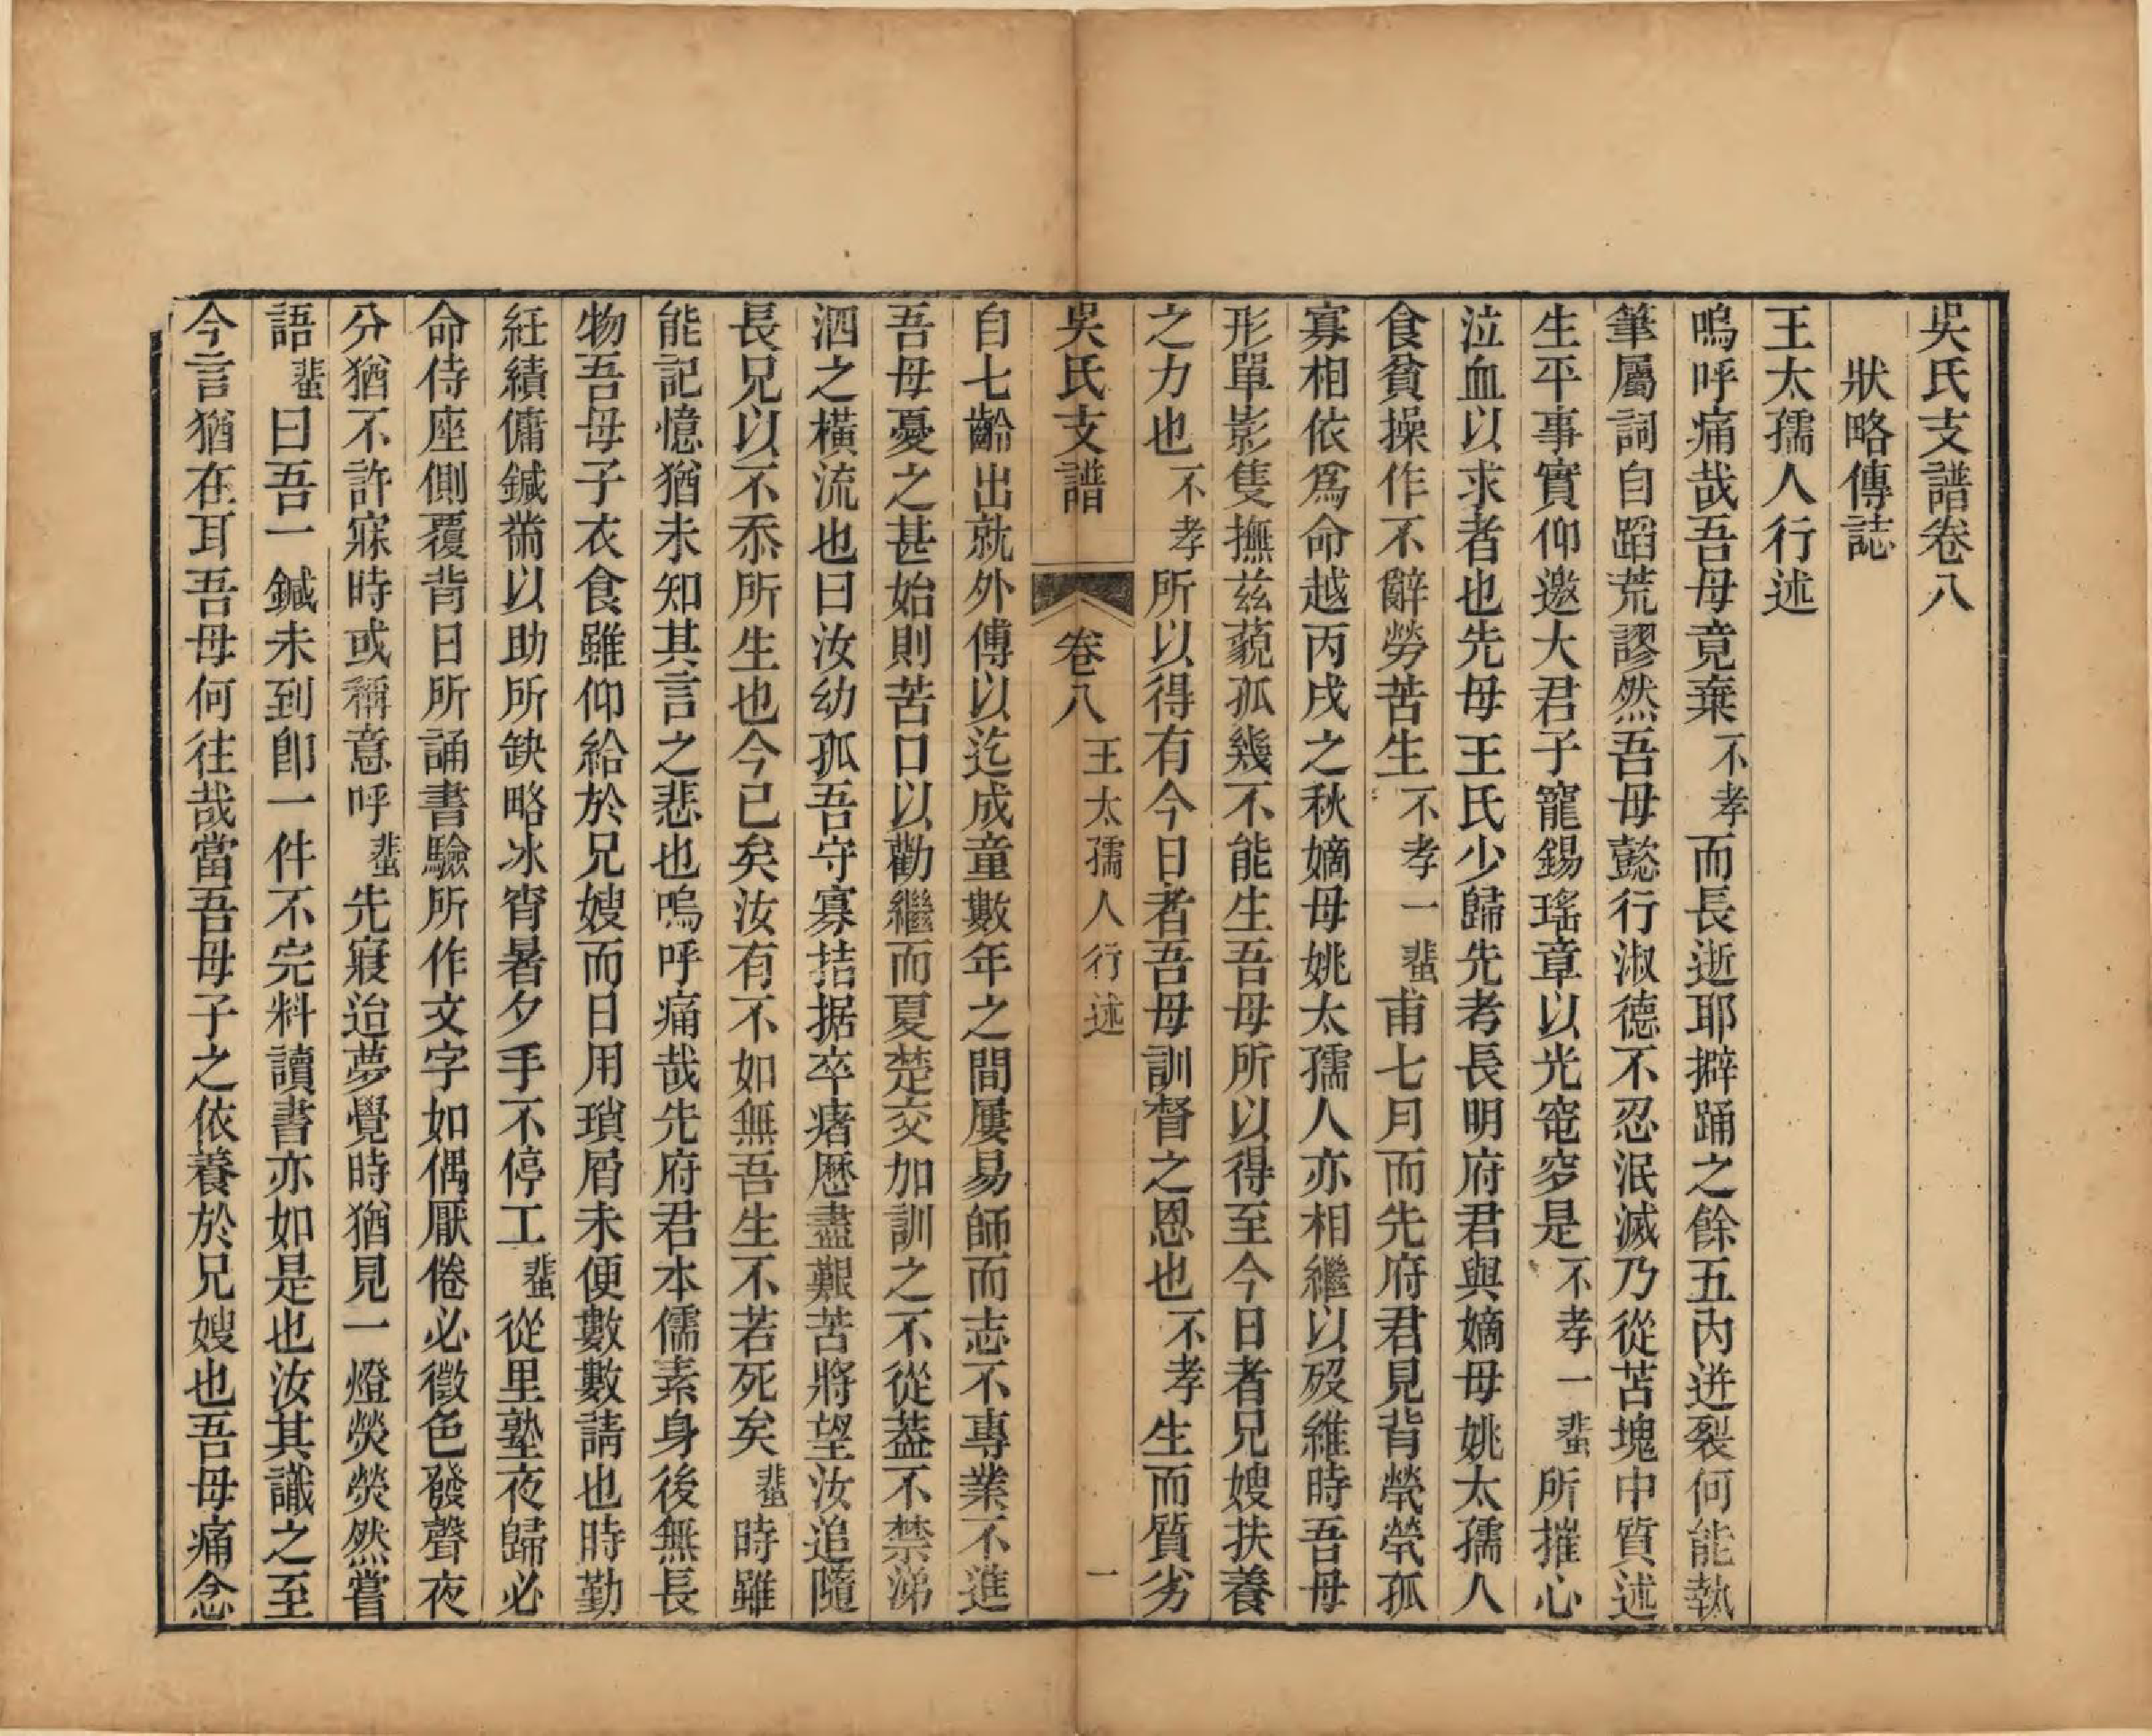 吳氏支譜卷八
狀略傳誌
王太孺人行述
嗚呼痛哉吾母竟棄不孝而長逝耶擗踊之餘五內迸裂何能執
筆屬詞自蹈荒謬然吾母懿行淑德不忍泯滅乃從苫塊中質述
生平事實仰邀大君子寵錫瑤章以光窀穸是不孝一蜚所摧心
泣血以求者也先母王氏少歸先考長明府君與嫡母姚太孺人
食貧操作不辭勞苦生不孝一蜚甫七月而先府君見背煢煢孤
寡相依爲命越丙戌之秋嫡母姚太孺人亦相繼以歿維時吾母
形單影隻撫茲藐孤幾不能生吾母所以得至今日者兄嫂扶養
之力也不孝所以得有今日者吾母訓督之恩也不孝生而質劣
吳氏支譜 卷八 王太孺人行述 一
自七齡出就外傅以迄成童數年之間屢易師而志不專業不進
吾母憂之甚始則苦口以勸繼而夏楚交加訓之不從葢不禁涕
泗之橫流也曰汝幼孤吾守寡拮据卒瘏歷盡艱苦將望汝追隨
長兄以不忝所生也今已矣汝有不如無吾生不若死矣蜚時雖
能記憶猶未知其言之悲也嗚呼痛哉先府君本儒素身後無長
物吾母子衣食雖仰給於兄嫂而日用瑣屑未便數數請也時勤
紝績傭鍼黹以助所缺略冰宵暑夕手不停工蜚從里塾夜歸必
命侍座側覆背日所誦書驗所作文字如偶厭倦必徵色發聲夜
分猶不許寐時或稱意呼蜚先寢迨夢覺時猶見一燈熒熒然嘗
語蜚曰吾一鍼未到卽一件不完料讀書亦如是也汝其識之至
今言猶在耳吾母何往哉當吾母子之依養於兄嫂也吾母痛念